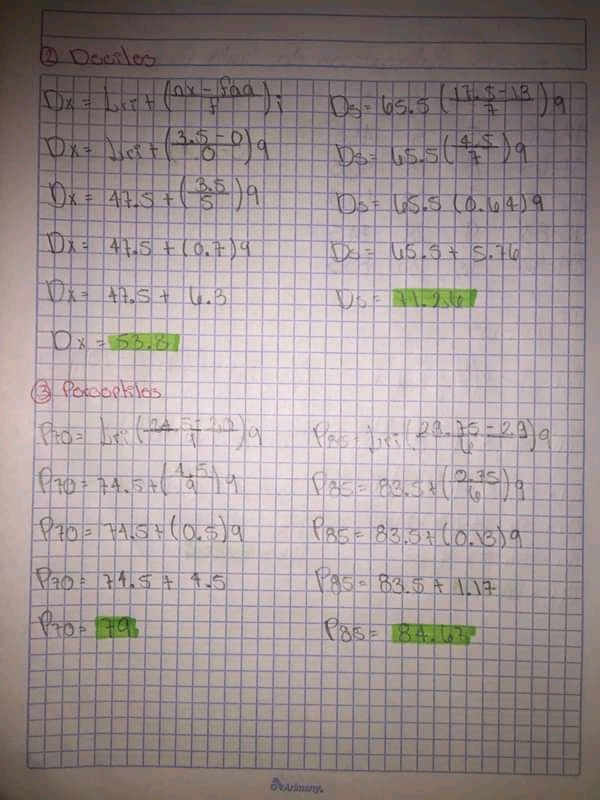 ② Deciles
Dx = Lri + (nx - faa / f) i
Dx = Lri + (3.5 - 0 / 0) 9
Dx = 47.5 + (3.5 / 5) 9
Dx = 47.5 + (0.7) 9
Dx = 47.5 + 6.3
Dx = 53.8
D5 = 65.5 (17.5 - 13 / 7) 9
D5 = 65.5 (4.5 / 7) 9
D5 = 65.5 (0.64) 9
D5 = 65.5 + 5.76
D5 = 71.26
③
P70 = Lri (24.5 - / ) 9
P70 = 74.5 + (4.5 / 9) 9
P70 = 74.5 + (0.5) 9
P70 = 74.5 + 4.5
P70 = 79
P85 = Lri (29.75 - 29 / 6) 9
P85 = 83.5 + (0.75 / 6) 9
P85 = 83.5 + (0.13) 9
P85 = 83.5 + 1.17
P85 = 84.63
Arimany.